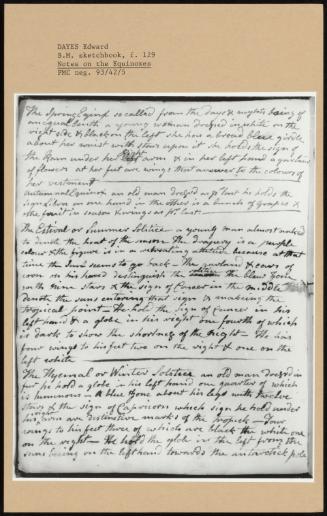 DAYES Edward
B.M. sketchbook, f. 129
Notes on the Equinoxes
PMC neg. 93/42/5
The Spring Equinx so called from the days & nights being of
an equal length a young woman dressed in white on the
right side & black on the left she has a broad blue girdle
about her waist with stars upon it she holds the sign of
the Ram under her arm & in her left hand a garland
of flowers at her feet are wings that answer to the colours of
her vestment
Autumnal Equinox an old man dressed as ye last he holds the
sign Libra in one hand in the other is a bunch of grapes &
other fruit in season & wings as ye last
The Estival or Summer Solstice a young man almost naked
to denote the heat of the season The drapery is a purple
colour & the figure is in a attitude because at that
time the Sun seems to go back The garland & ears of
corn in his hand distinguish the the blue Zone
with nine stars & the sign of Cancer in the middle
denote the suns entering that sign & making the
tropical point He holds the sign of Cancer in his
left hand & a globe in his right one fourth of which
is dark to show the shortness of the Night He has
four wings to his feet two on the right & one on the
left white
The Hyemal or Winter Solstice an old man dressed in
fur he holds a globe in his left hand one quarter of which
is luminous A blue Zone about his legs with twelve
stars & the sign of Capricorn which sign he holds under
his arm are distinctive marks of the tropick Four
wings to his feet three of which are black the white one
on the right He holds the globe in the left from the
suns being on the left hand towards the antarctick pole